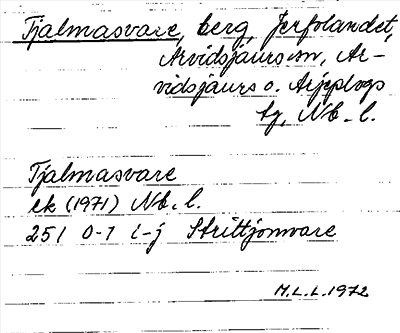 Tjalmasvare, berg, Jerfolandet,
Arvidsjaurs sn, Ar-
vidsjaurs o. Arjeplogs
tg, Nb. l.
Tjalmasvare
ek (1971) Nb. l.
25 I 0-1 i-j Strittjomvare
M.L.L. 1972